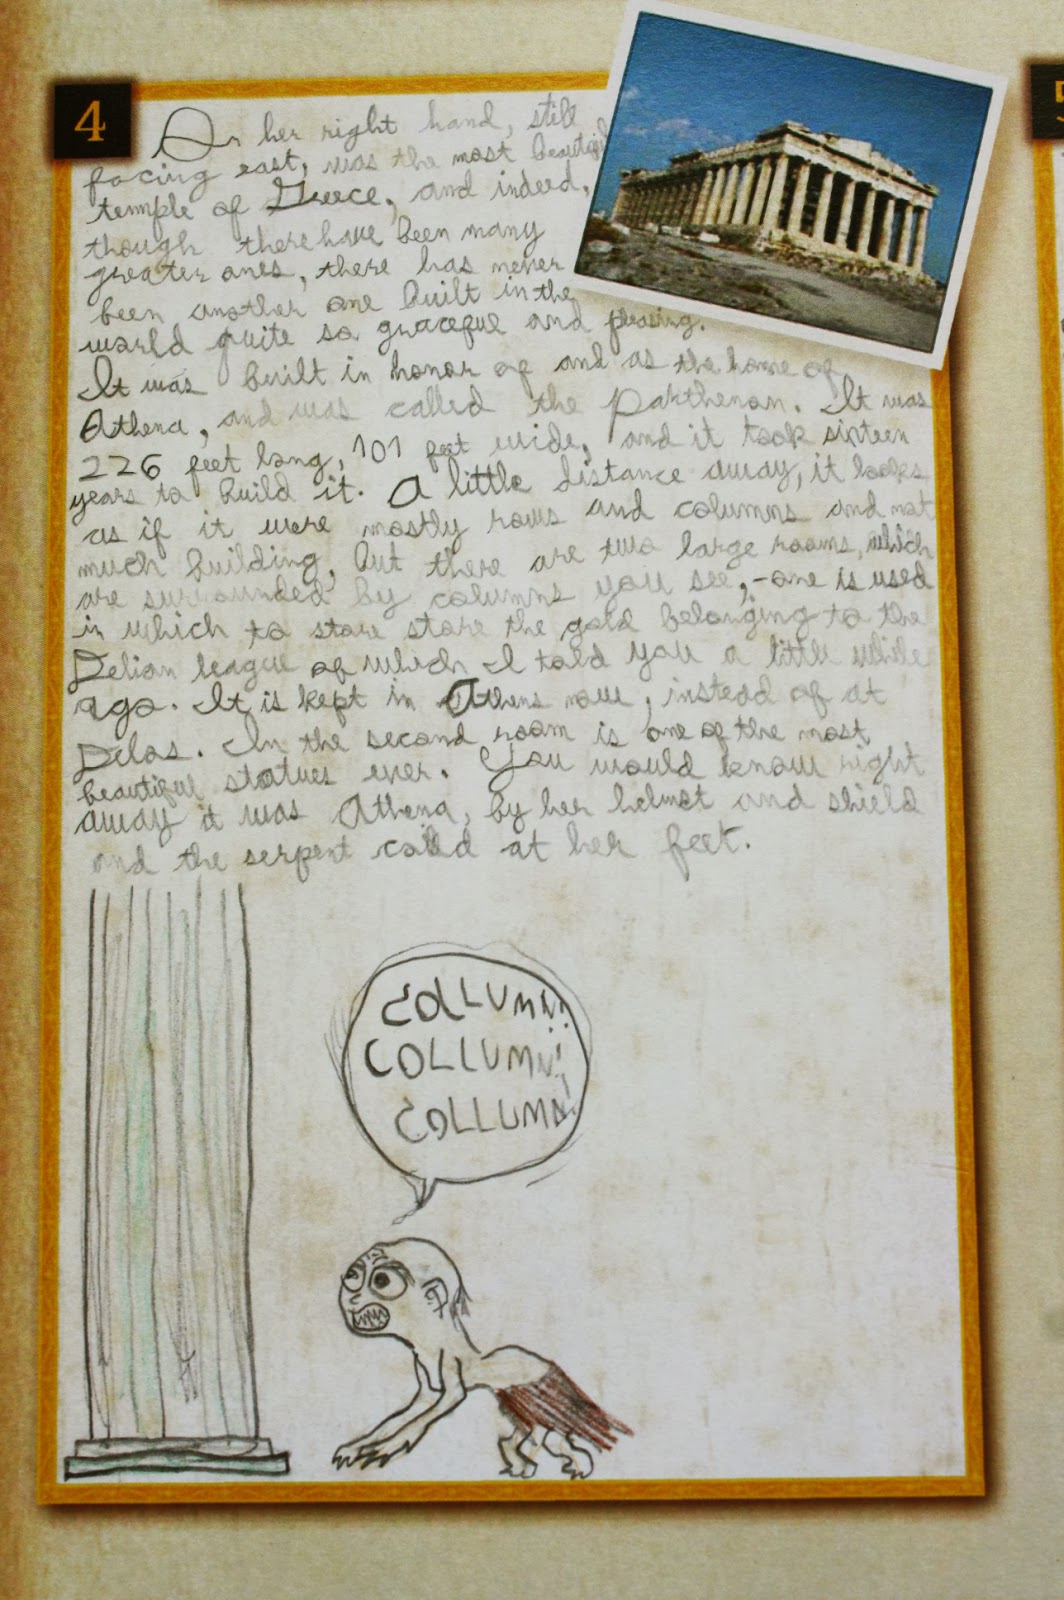 4
On her right hand, still
facing east, was the most beautiful
temple of Greece, and indeed,
though there have been many
greater ones, there has never
been another one built in the
world quite so graceful and pleasing.
It was built in honor of and as the home of
Athena, and was called the Parthenon. It was
226 feet long, 101 feet wide, and it took sixteen
years to build it. A little distance away, it looks
as if it were mostly rows and columns and not
much building, but there are two large rooms, which
are surrounded by columns you see, - one is used
in which to store store the gold belonging to the
Delian league of which I told you a little while
ago. It is kept in Athens now, instead of at
Delos. In the second room is one of the most
beautiful statues ever. You would know right
away it was Athena, by her helmet and shield
and the serpent coiled at her feet.
COLLUMN!
COLLUMN!
COLLUMN